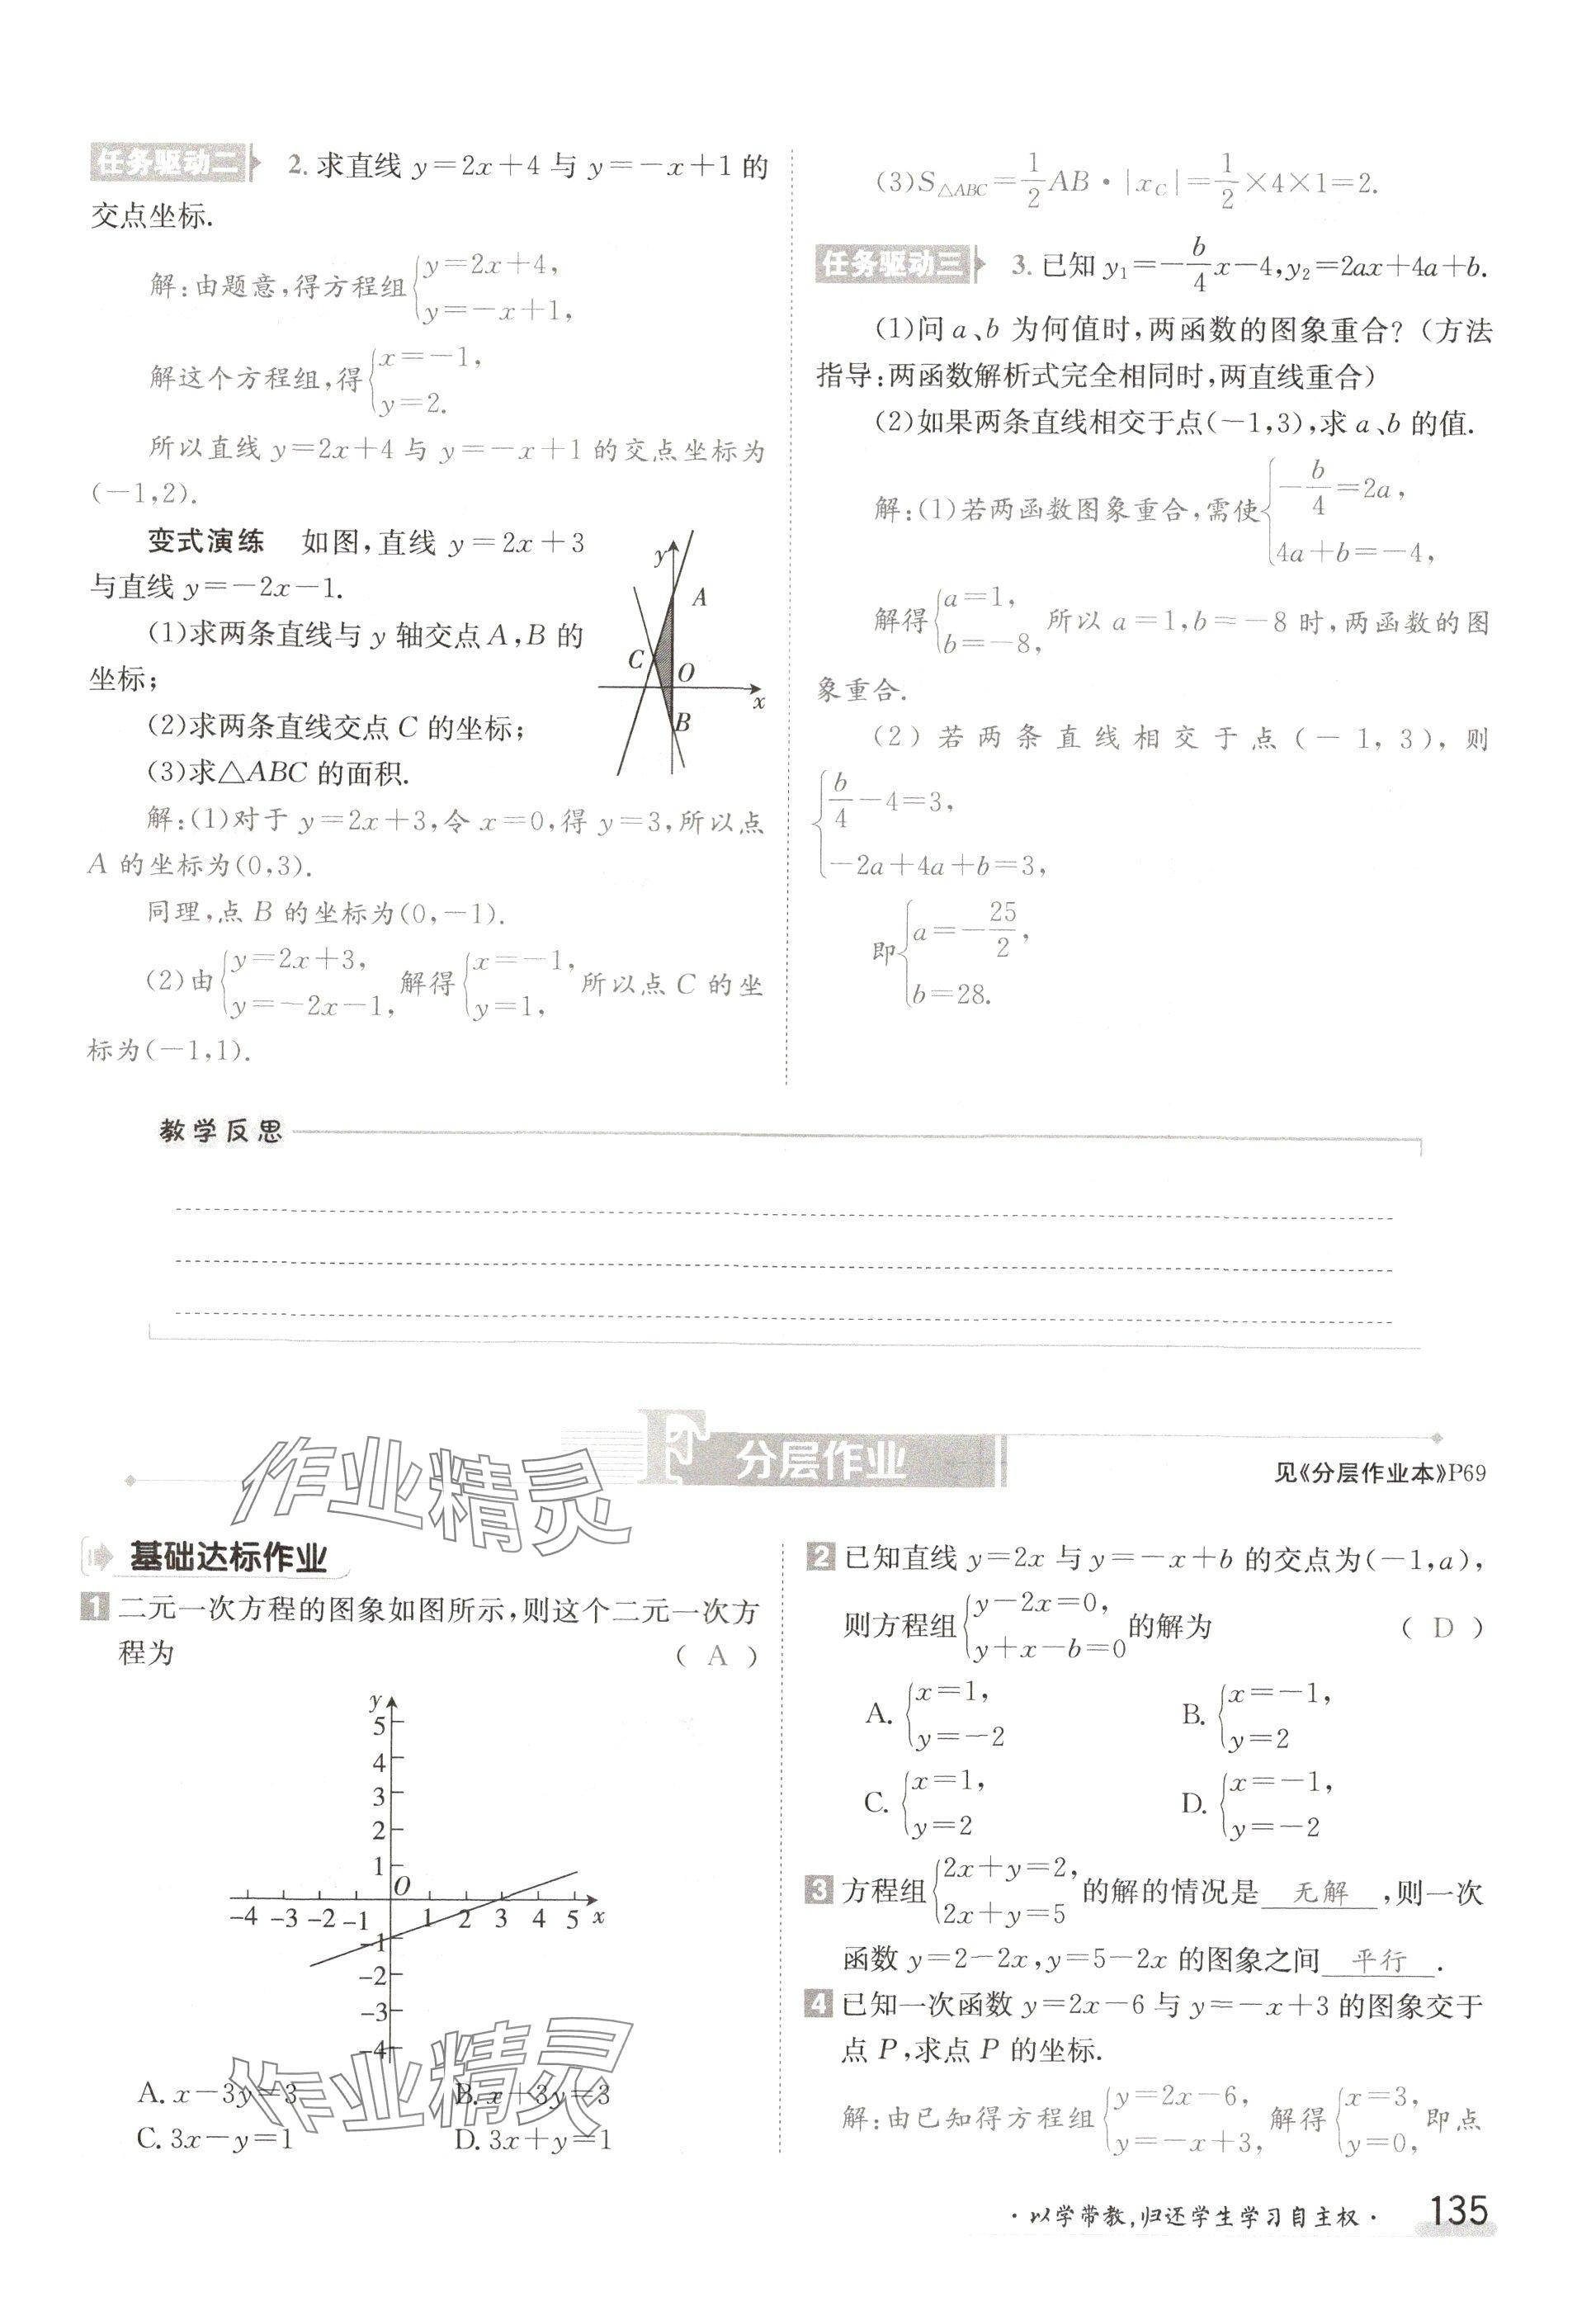 任务驱动二 2. 求直线 y=2x+4 与 y=-x+1 的
交点坐标.
解:由题意,得方程组{y=2x+4, y=-x+1,
解这个方程组,得{x=-1, y=2.
所以直线 y=2x+4 与 y=-x+1 的交点坐标为
(-1,2).
变式演练 如图,直线 y=2x+3
与直线 y=-2x-1.
(1)求两条直线与 y 轴交点 A,B 的
坐标;
(2)求两条直线交点 C 的坐标;
(3)求△ABC 的面积.
y
A
C
O
x
B
解:(1)对于 y=2x+3,令 x=0,得 y=3,所以点
A 的坐标为(0,3).
同理,点 B 的坐标为(0,-1).
(2)由{y=2x+3, y=-2x-1, 解得{x=-1, y=1, 所以点 C 的坐
标为(-1,1).
(3)S△ABC=1/2 AB·|xC|=1/2×4×1=2.
任务驱动三 3. 已知 y₁=-b/4 x-4,y₂=2ax+4a+b.
(1)问 a、b 为何值时,两函数的图象重合?(方法
指导:两函数解析式完全相同时,两直线重合)
(2)如果两条直线相交于点(-1,3),求 a、b 的值.
解:(1)若两函数图象重合,需使{-b/4=2a, 4a+b=-4,
解得{a=1, b=-8, 所以 a=1,b=-8 时,两函数的图
象重合.
(2)若两条直线相交于点(-1,3),则
{b/4-4=3, -2a+4a+b=3,
即{a=-25/2, b=28.
教学反思
F 分层作业
见《分层作业本》P69
作业精灵
基础达标作业
1 二元一次方程的图象如图所示,则这个二元一次方
程为 ( A )
y
5
4
3
2
1
O
-4 -3 -2 -1 1 2 3 4 5 x
-1
-2
-3
-4
作业精灵
A. x-3y=3 B. x+3y=3
C. 3x-y=1 D. 3x+y=1
2 已知直线 y=2x 与 y=-x+b 的交点为(-1,a),
则方程组{y-2x=0, y+x-b=0 的解为 ( D )
A. {x=1, y=-2 B. {x=-1, y=2
C. {x=1, y=2 D. {x=-1, y=-2
3 方程组{2x+y=2, 2x+y=5 的解的情况是 无解 ,则一次
函数 y=2-2x,y=5-2x 的图象之间 平行 .
4 已知一次函数 y=2x-6 与 y=-x+3 的图象交于
点 P,求点 P 的坐标.
解:由已知得方程组{y=2x-6, y=-x+3, 解得{x=3, y=0, 即点
·以学带教,归还学生学习自主权· 135